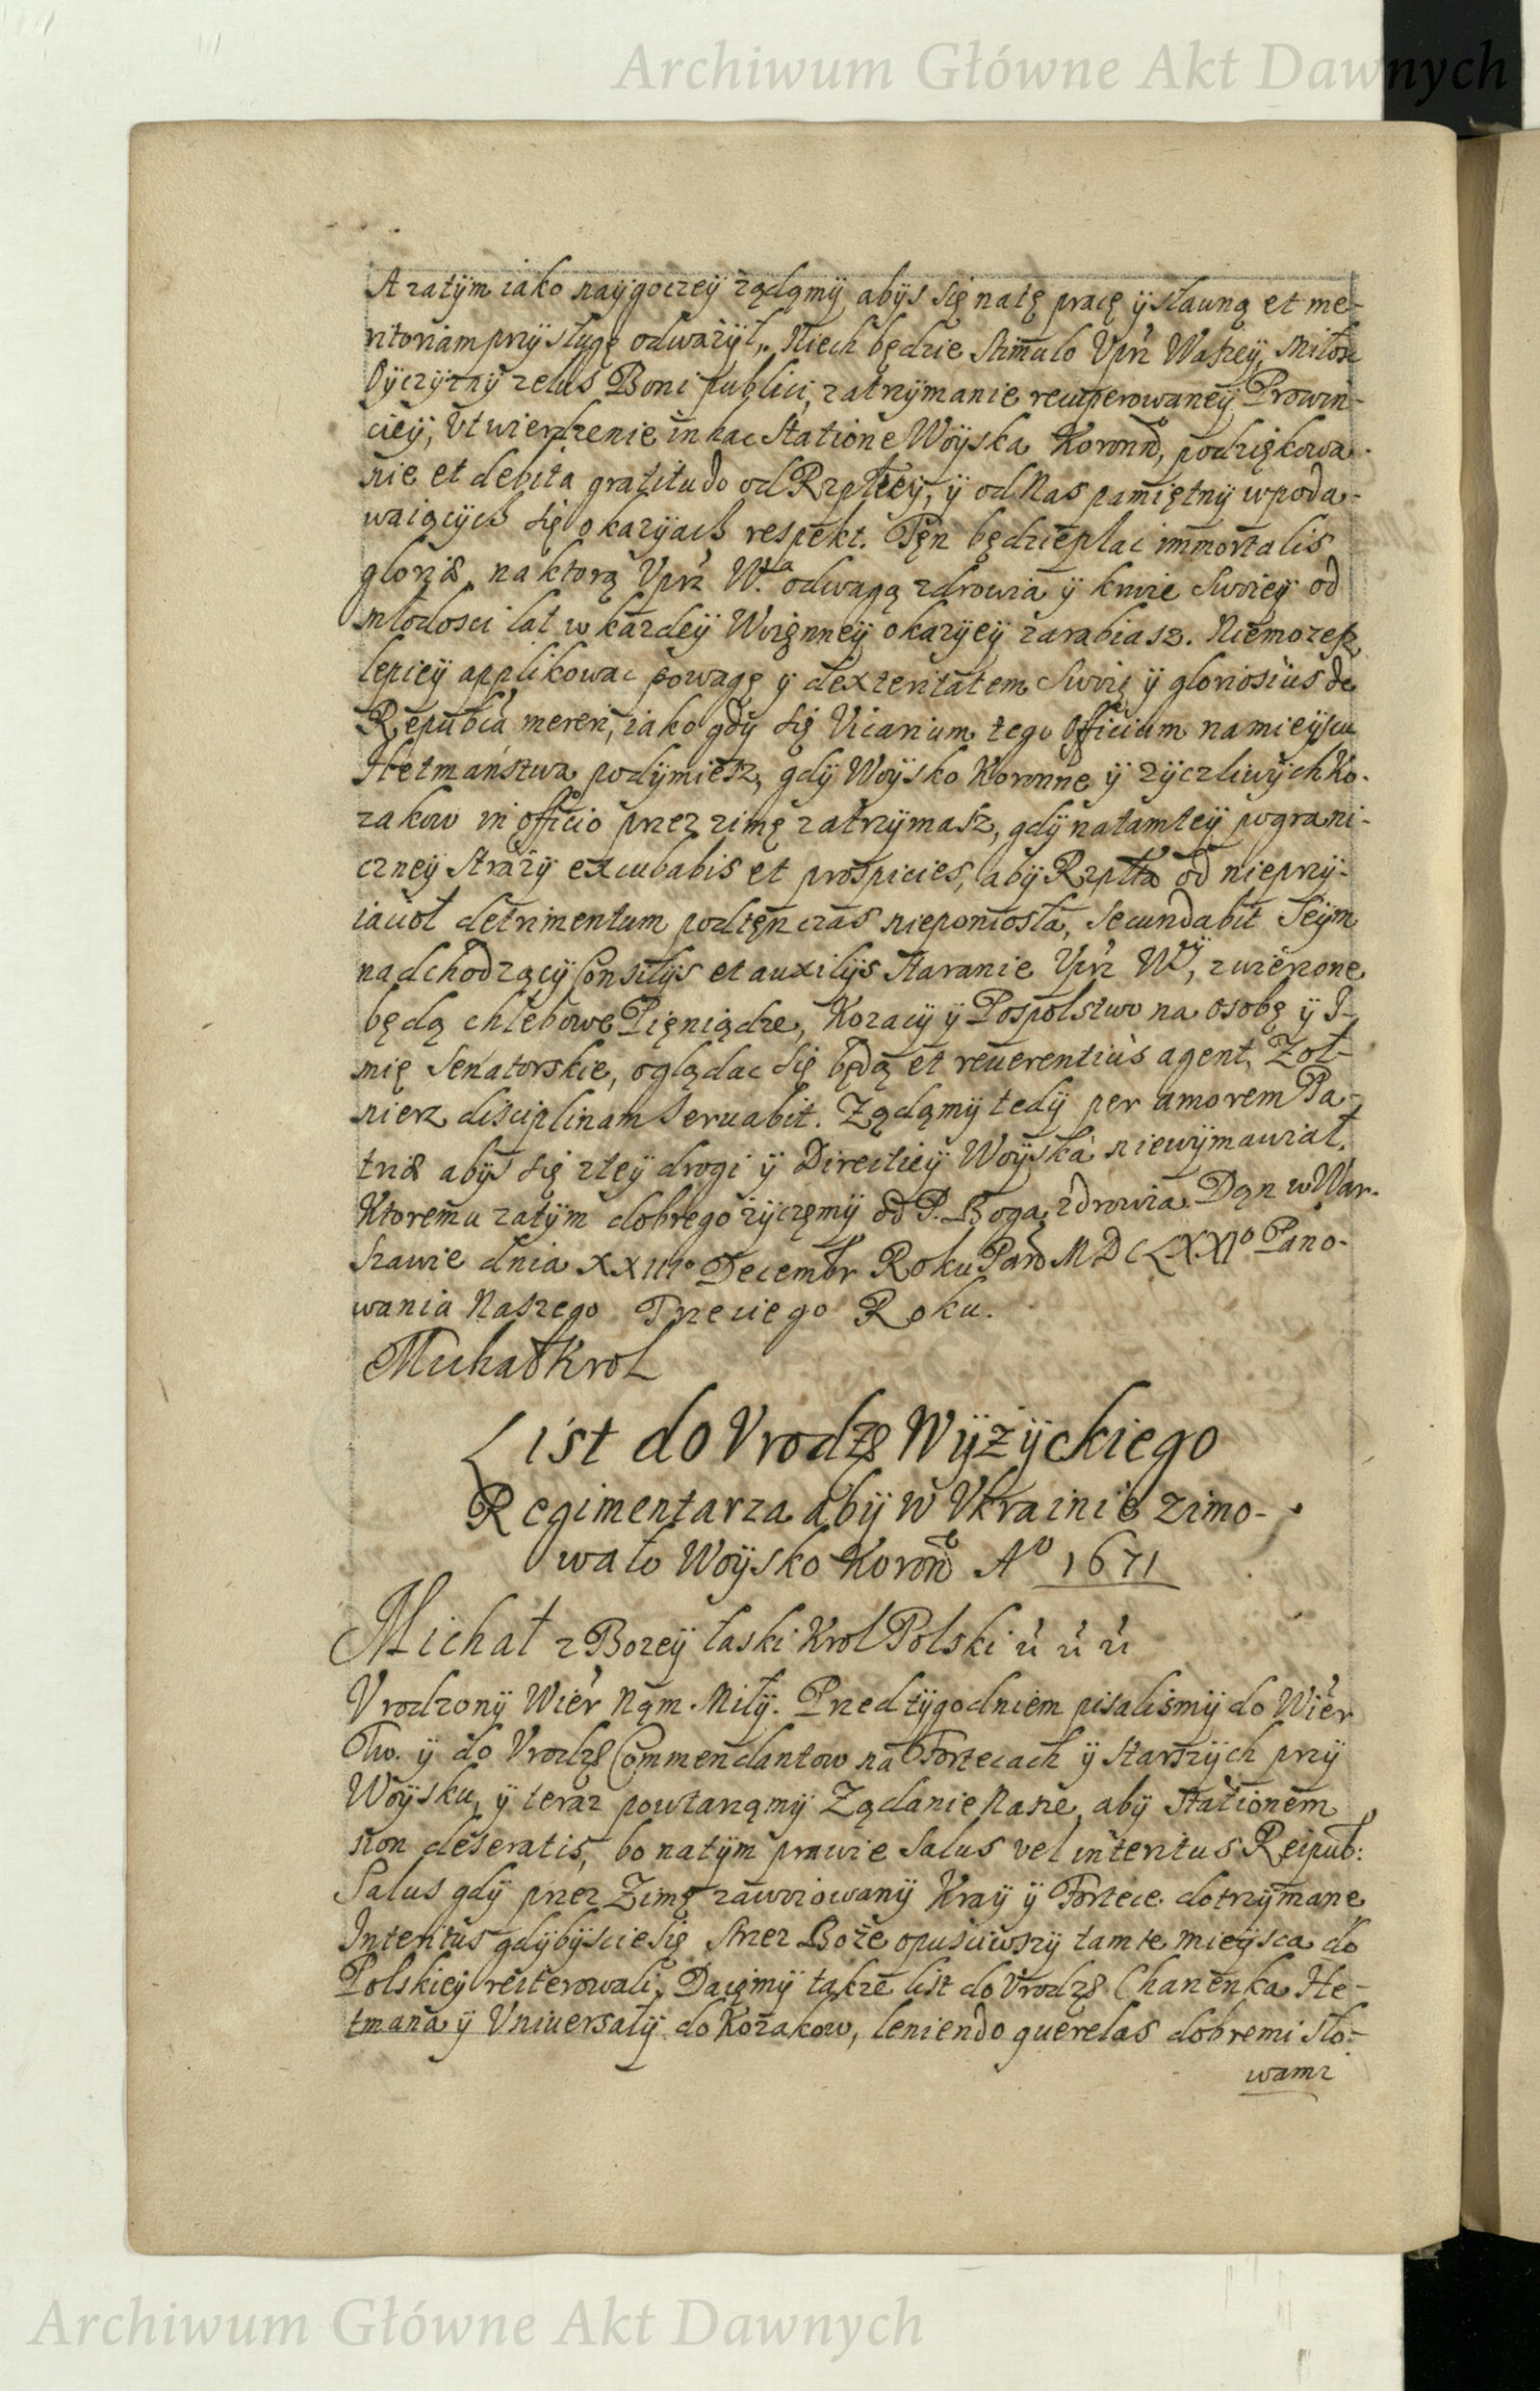 Archiwum Główne Akt Dawnych
A zatÿm iako naÿgoczeÿ ządąmÿ abÿs się natę pracę ÿ sławną et me-
ritoriam przÿsługę odwazÿł, Niech będzie stimulo Vprz Waszeÿ, Miłosc
Oÿczÿznÿ zelus Boni publici, zatrzÿmanie recuperowaneÿ Prowin-
cieÿ, Vtwierdzenie in hac Statione Woÿska Koronno, podziękowa-
nie et debita gratitudo od Rzplteÿ, ÿ od Nas pamiętnÿ wpoda-
waiącÿch się okazÿach respekt. Tęn będzie plac immortalis
gloriæ, na ktorą Vprz W.a odwagą zdrowia ÿ krwie Swoieÿ od
młodosci lat w kazdeÿ Woięnneÿ okazÿeÿ zarabiasz. Niemozesz
lepieÿ applikowac powagę ÿ dexteritatem Swoię ÿ gloriosius de
Republca mereri, iako gdÿ się Vicarium tego Officium namieÿscu
Hetmanstwa podÿmiesz, gdÿ Woÿsko Koronne ÿ zÿczliwÿch Ko-
zakow in officio przez zimę zatrzÿmasz, gdÿ natamteÿ pograni-
czneÿ strazÿ excubabis et prospicies, abÿ Rzplta od nieprzÿ-
iacioł detrimentum podtęn czas nieponiosła, Secundabit Seÿm
nadchodzącÿ Consilÿs et auxilÿs staranie Vprz Wÿ, zwiezione
będą chlebowe Pięniądze, Kozacÿ ÿ Pospolstwo na osobę ÿ I-
mię Senatorskie, oglądac się będą et reuerentius agent, Zoł-
nierz disciplinam Seruabit. Ządąmÿ tedÿ per amorem Pa-
triæ abÿs się zteÿ drogi ÿ Directieÿ Woÿska niewÿmawiał,
Ktoremu zatÿm dobrego zÿczęmÿ od P. Boga zdrowia Dąn w War-
szawie dnia XXIIIo Decembr Roku Pand MDCLXXIo Pano-
wania Naszego Trzeciego Roku.
Michał Krol
List do Vrodzo Wÿzÿckiego
Regimentarza abÿ w Vkrainie zimo-
wało Woÿsko Koronne Ao 1671
Michał z Bozeÿ łaski Krol Polski ú ú ú
Vrodzonÿ Wier Nąm Miłÿ. Przed tÿgodniem pisalismÿ do Wier
Tw. ÿ do Vrodzo Commendantow na Fortecach ÿ starszÿch przÿ
Woÿsku, ÿ teraz powtarząmÿ Ządanie Nasze, abÿ Stationem
non deseratis, bo natÿm prawie Salus vel interitus Reipub:
Salus gdÿ przez Zimę zawoiowanÿ Kraÿ ÿ Fortece dotrzÿmane
Interitus gdÿbÿscie się strzez Boze opusciwszÿ tamte mieÿsca do
Polskieÿ reiterowali, Daięmÿ takze list do Vrodzo Chanenka He-
tmana ÿ Vniuersałÿ do Kozakow, leniendo querelas dobremi sło-
wami
Archiwum Główne Akt Dawnych